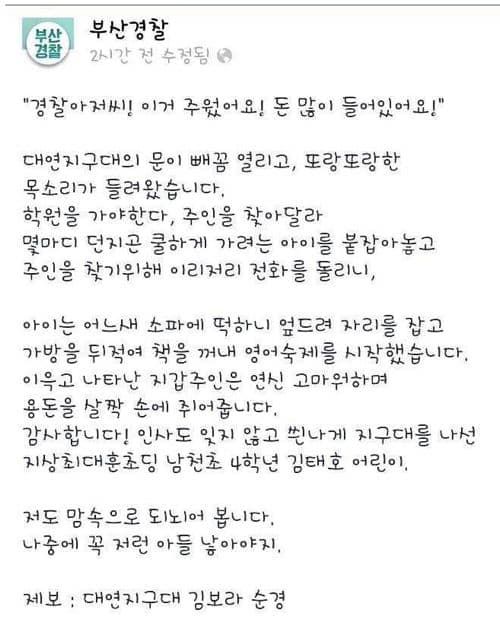 부산
경찰
부산경찰
2시간 전 수정됨
"경찰아저씨! 이거 주웠어요! 돈 많이 들어있어요!"
대연지구대의 문이 빼꼼 열리고, 또랑또랑한
목소리가 들려왔습니다.
학원을 가야한다, 주인을 찾아달라
몇마디 던지곤 쿨하게 가려는 아이를 붙잡아놓고
주인을 찾기위해 이리저리 전화를 돌리니,
아이는 어느새 소파에 떡하니 엎드려 자리를 잡고
가방을 뒤적여 책을 꺼내 영어숙제를 시작했습니다.
이윽고 나타난 지갑주인은 연신 고마워하며
용돈을 살짝 손에 쥐어줍니다.
감사합니다! 인사도 잊지 않고 씐나게 지구대를 나선
지상최대훈초딩 남천초 4학년 김태호 어린이.
저도 맘속으로 되뇌어 봅니다.
나중에 꼭 저런 아들 낳아야지.
제보 : 대연지구대 김보라 순경